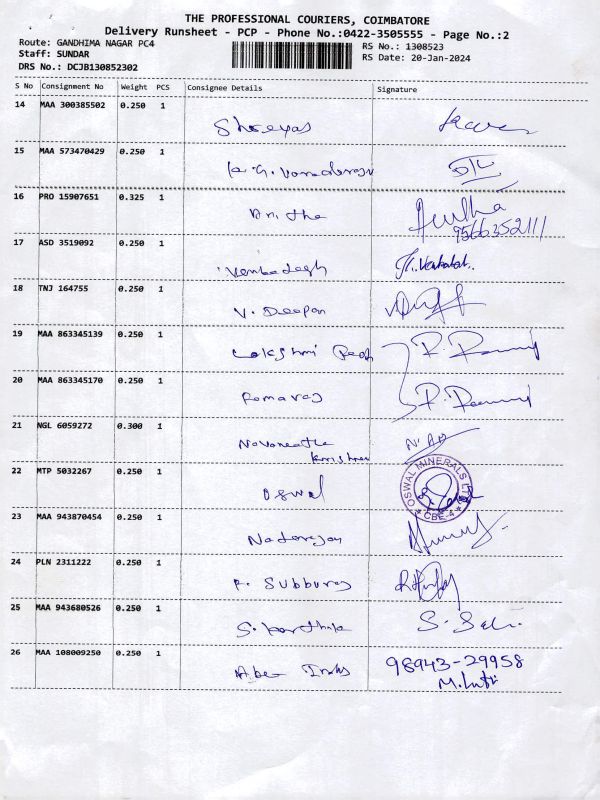 THE PROFESSIONAL COURIERS, COIMBATORE
Delivery Runsheet - PCP - Phone No.:0422-3505555 - Page No.:2
Route: GANDHIMA NAGAR PC4
RS No.: 1308523
Staff: SUNDAR
RS Date: 20-Jan-2024
DRS No.: DCJB130852302
S No Consignment No Weight PCS Consignee Details Signature
14 MAA 300385502 0.250 1
Shreyas
15 MAA 573470429 0.250 1
16 PRO 15907651 0.325 1
Anitha
9566352111
17 ASD 3519092 0.250 1
Venkatesh
18 TNJ 164755 0.250 1
V. Deepan
19 MAA 863345139 0.250 1
Lakshmi
20 MAA 863345170 0.250 1
Ramaraj
21 NGL 6059272 0.300 1
Navaneetha
Krishnan
22 MTP 5032267 0.250 1
Oswal
OSWAL MINERALS
CBE-4
23 MAA 943870454 0.250 1
Natarajan
24 PLN 2311222 0.250 1
P. Subburaj
25 MAA 943680526 0.250 1
S. Karthik
26 MAA 108009250 0.250 1
98943-29958